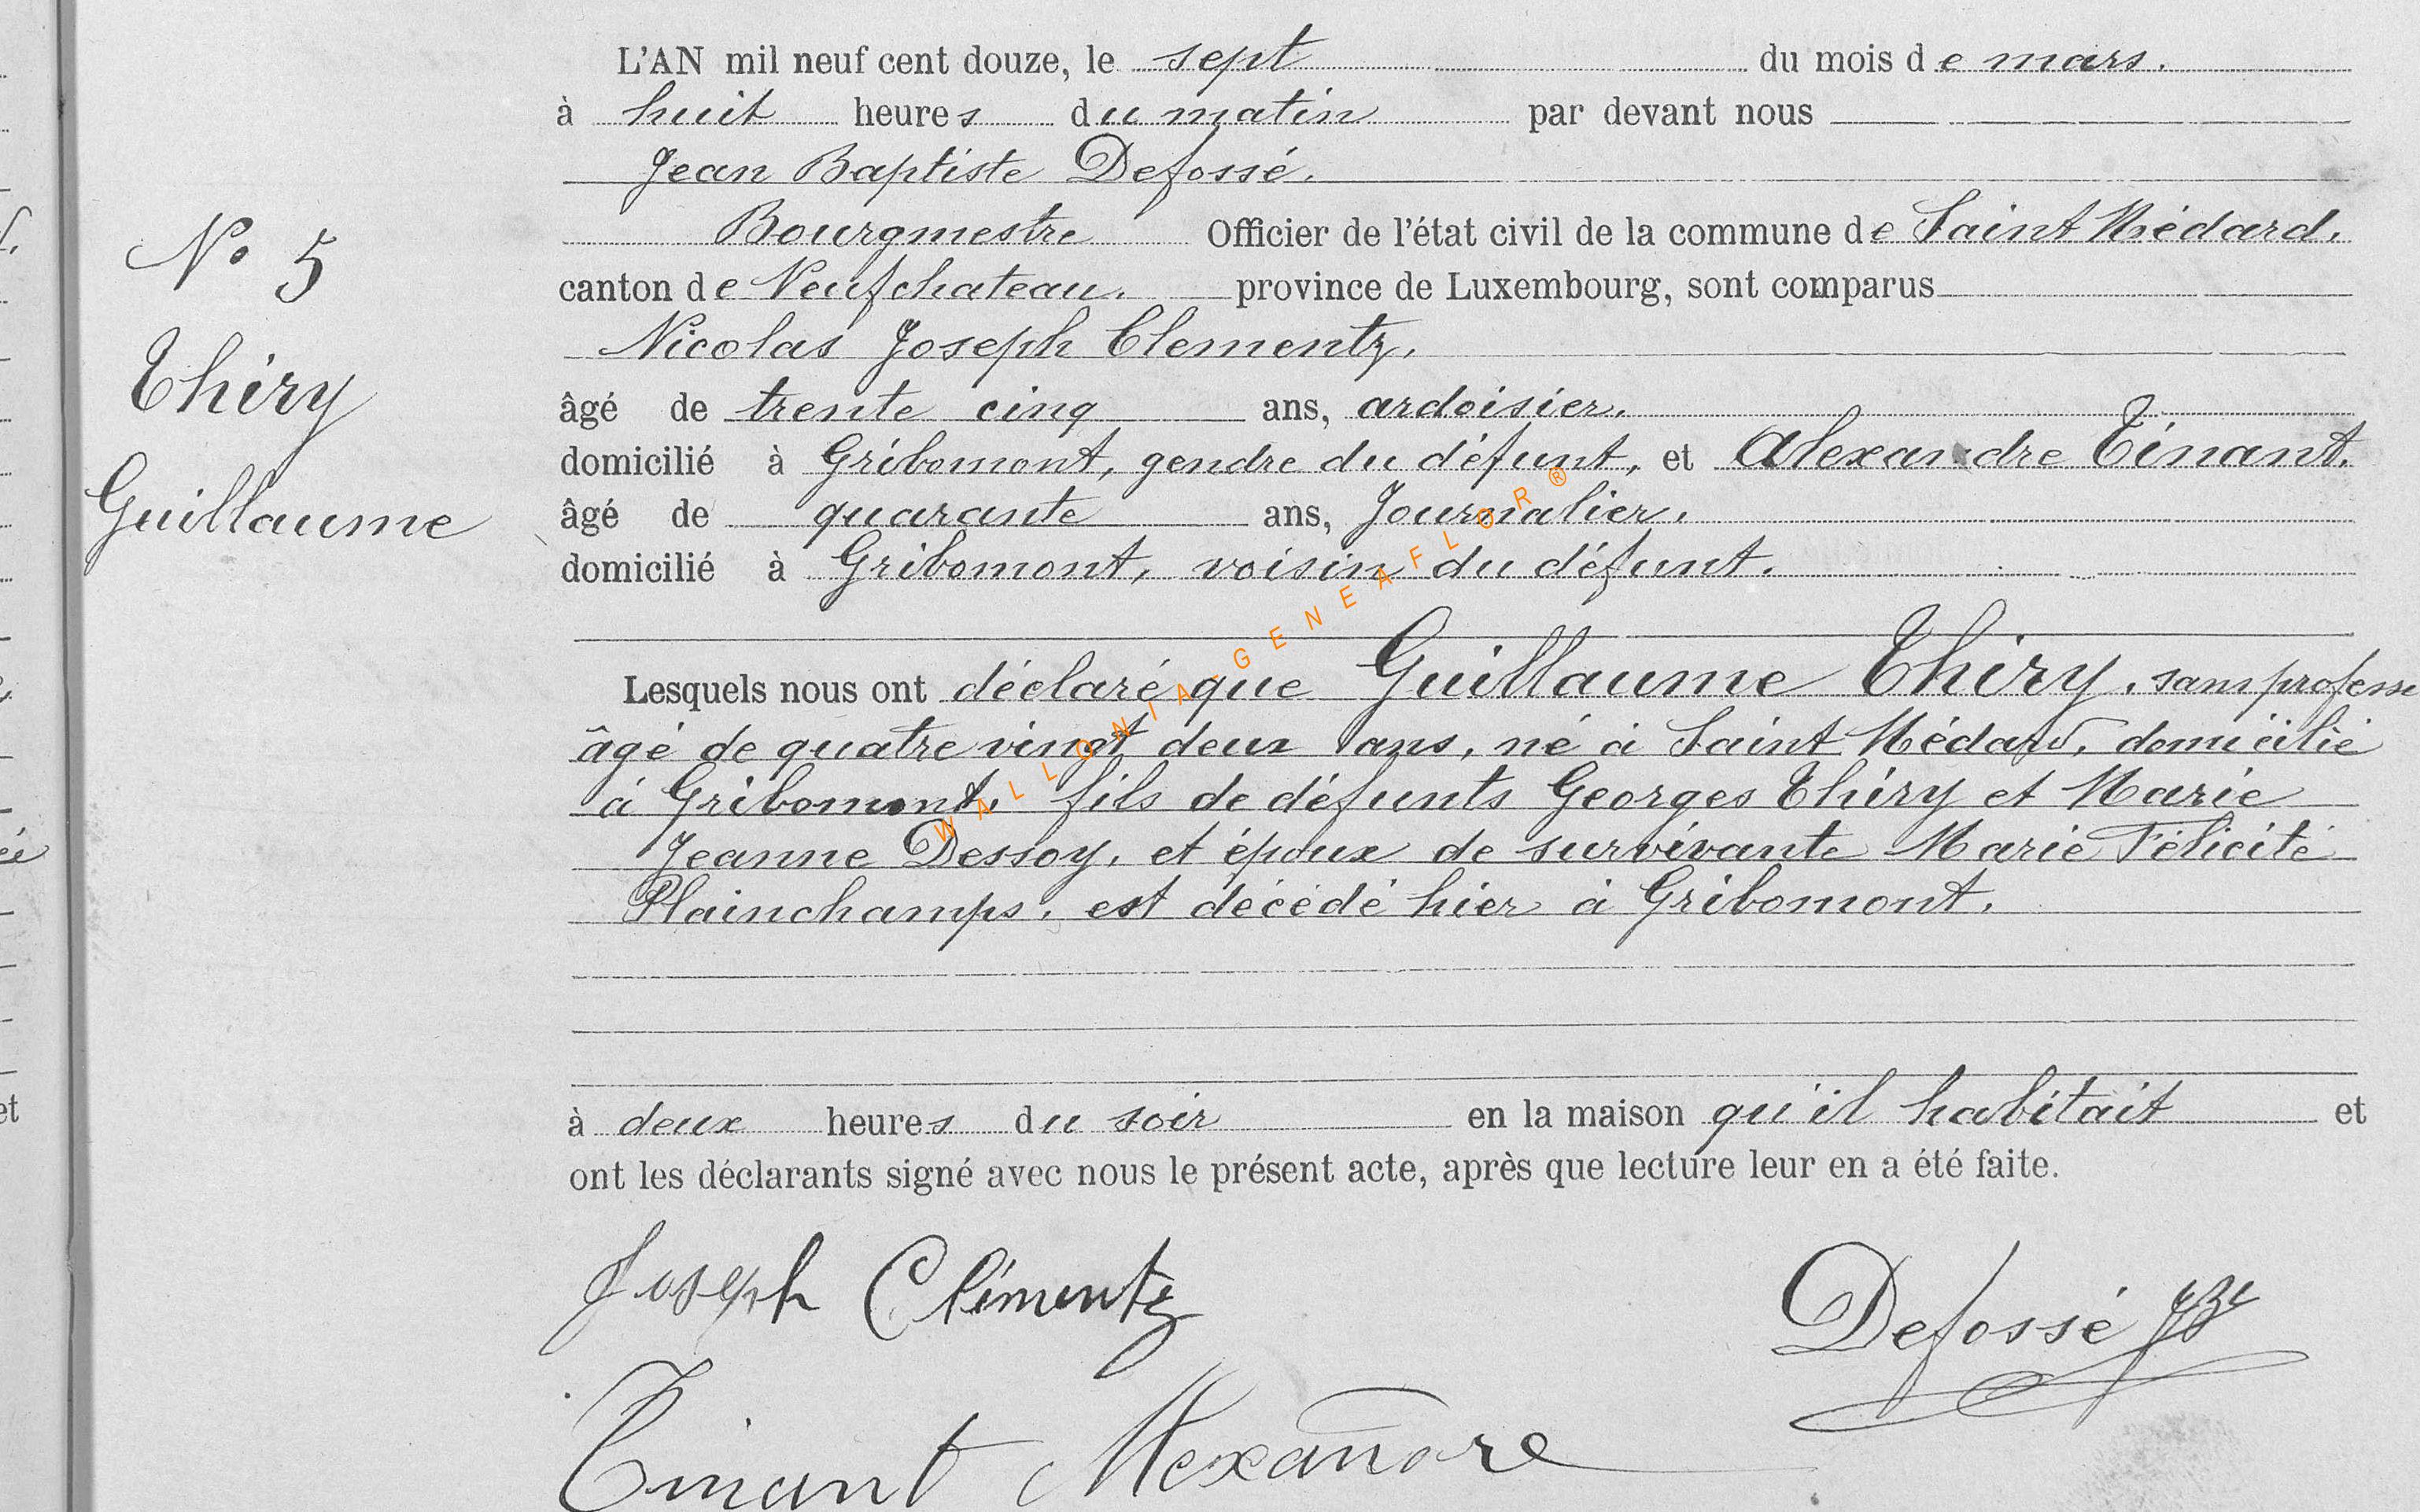 L'AN mil neuf cent douze, le sept du mois de mars.
à huit heures du matin par devant nous
Jean Baptiste Defossé.
Bourgmestre Officier de l'état civil de la commune de Saint Médard.
canton de Neufchateau. province de Luxembourg, sont comparus
Nicolas Joseph Clementz.
âgé de trente cinq ans, ardoisier.
domicilié à Gribomont, gendre du défunt, et Alexandre Tinant.
âgé de quarante ans, Journalier.
domicilié à Gribomont, voisin du défunt.
N° 5
Thiry
Guillaume
Lesquels nous ont déclaré que Guillaume Thiry, sans profess
âgé de quatre vingt deux ans, né à Saint Médard, domicilié
à Gribomont, fils de défunts Georges Thiry et Marie
Jeanne Dessoy, et époux de survivante Marie Félicité
Plainchamps, est décédé hier à Gribomont.
à deux heures du soir en la maison qu'il habitait et
ont les déclarants signé avec nous le présent acte, après que lecture leur en a été faite.
Joseph Clémentz
Defossé
Tinant Alexandre
WALLONIA-GENEAFLOR®
et